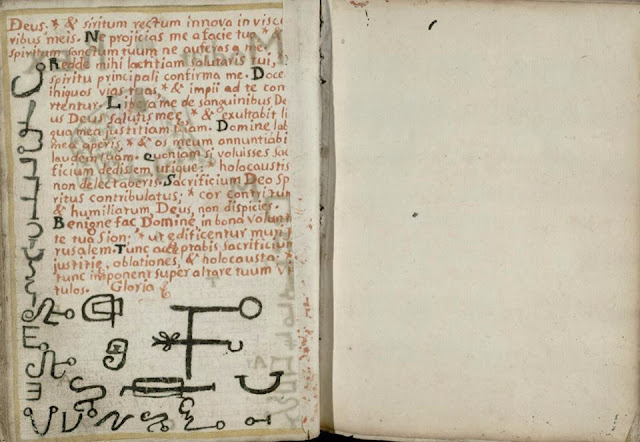 Deus. * & siritum rectum innova in visce
ribus meis. Ne projicias me a facie tua *
spiritum sanctum tuum ne auferas a me.
Redde mihi lætitiam salutaris tui,
spiritu principali confirma me. Doce
iniquos vias tuas * & impii ad te con
rtentur. Libera me de sanguinibus De
us Deus salutis meę, * & exultabit li
qua mea justitiam tuam. Domine lab
mea aperis, * & os meum annuntiabi
laudem tuam. Quoniam si voluisses sac
ficium dedissem utique: holocaustis
non delectaberis. Sacrificium Deo Sp
ritus contribulatus; * cor contritum
& humiliatum Deus, non dispicies.
Benigne fac Domine in bona volunt
te tua Sion. * ut edificentur muri
rusalem. Tunc acceptabis sacrificium
justitie, oblationes, & holocausta.
tunc imponent super altare tuum V
tulos. Gloria